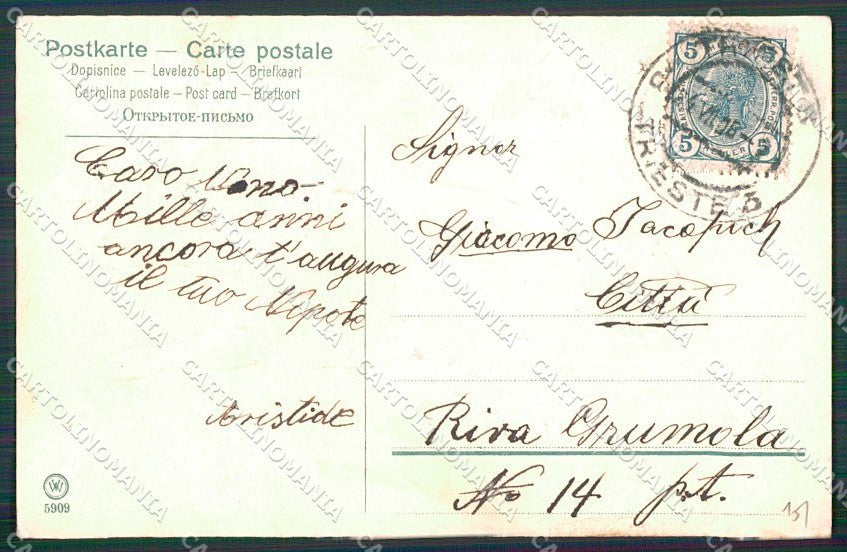 Postkarte — Carte postale
Dopisnice — Levelező-Lap — Briefkaart
Cartolina postale — Post card — Brefkort
Открытое-письмо
Caro Nono.
Mille anni
ancora t'augura
il tuo Nipote
Aristide
Signor
Giacomo Iacopich
Città
Riva Grumola
No 14 p.t.
5
5
5
5
TRIESTE
W
5909
151
CARTOLINOMANIA